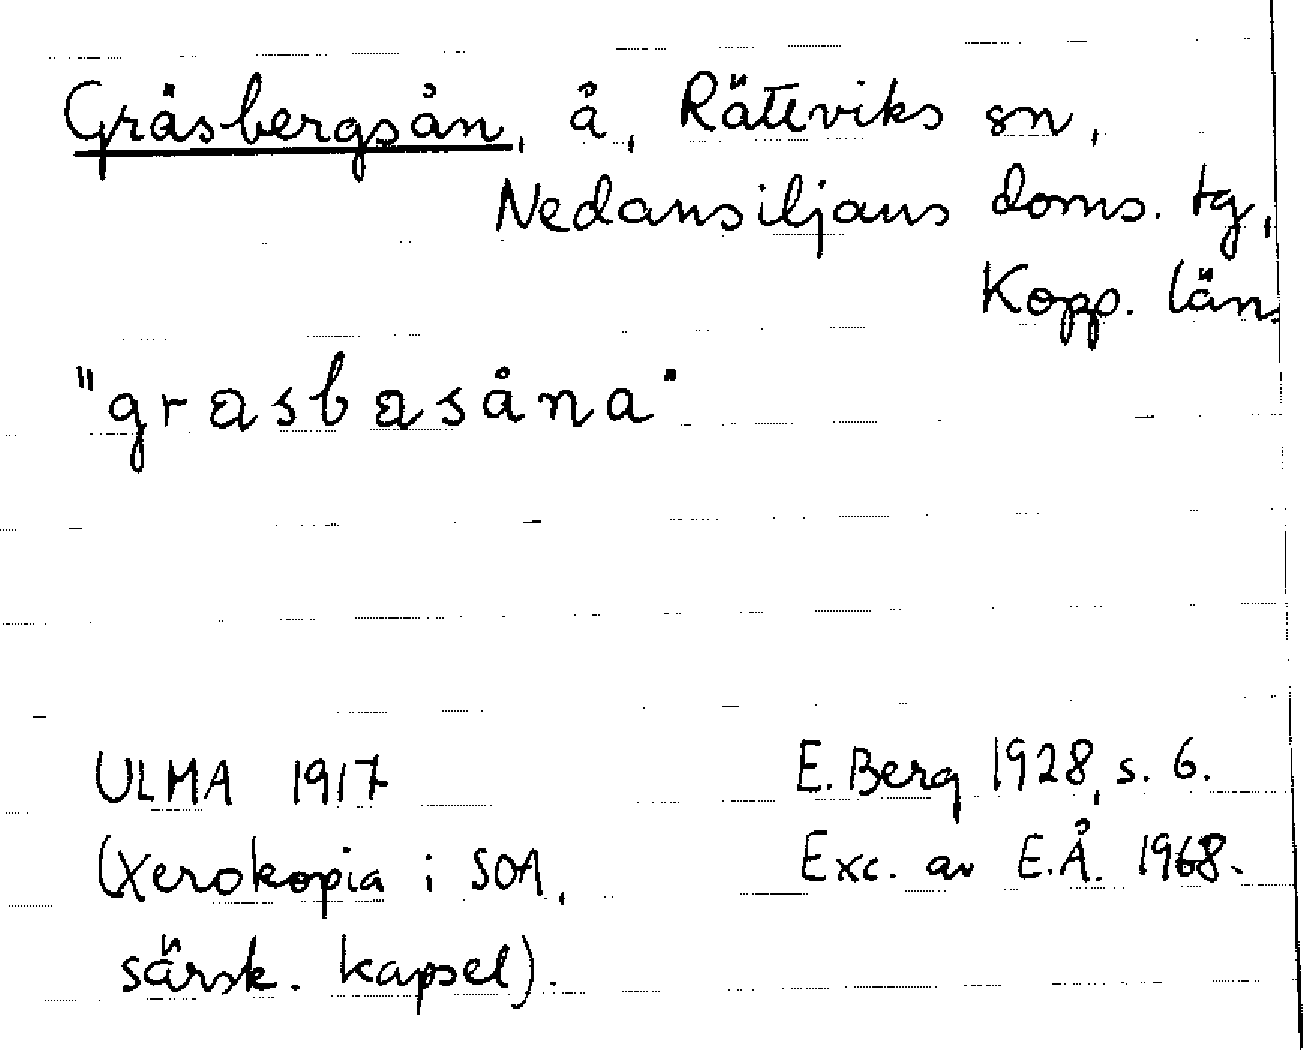 Gräsbergsån, å, Rättviks sn,
Nedansiljans doms. tg,
Kopp. län.
"grasbasåna"
ULMA 1917
(Xerokopia i SOA,
särsk. kapsel).
E. Berg 1928, s. 6.
Exc. av E.Å. 1968.